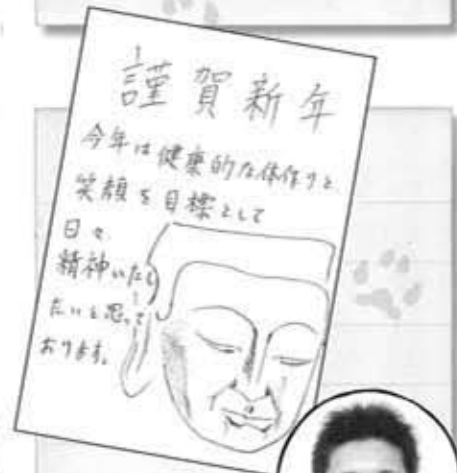 謹賀新年
今年は健康的な体作りと
笑顔を目標として
日々
精神いたし
たいと思って
おります。